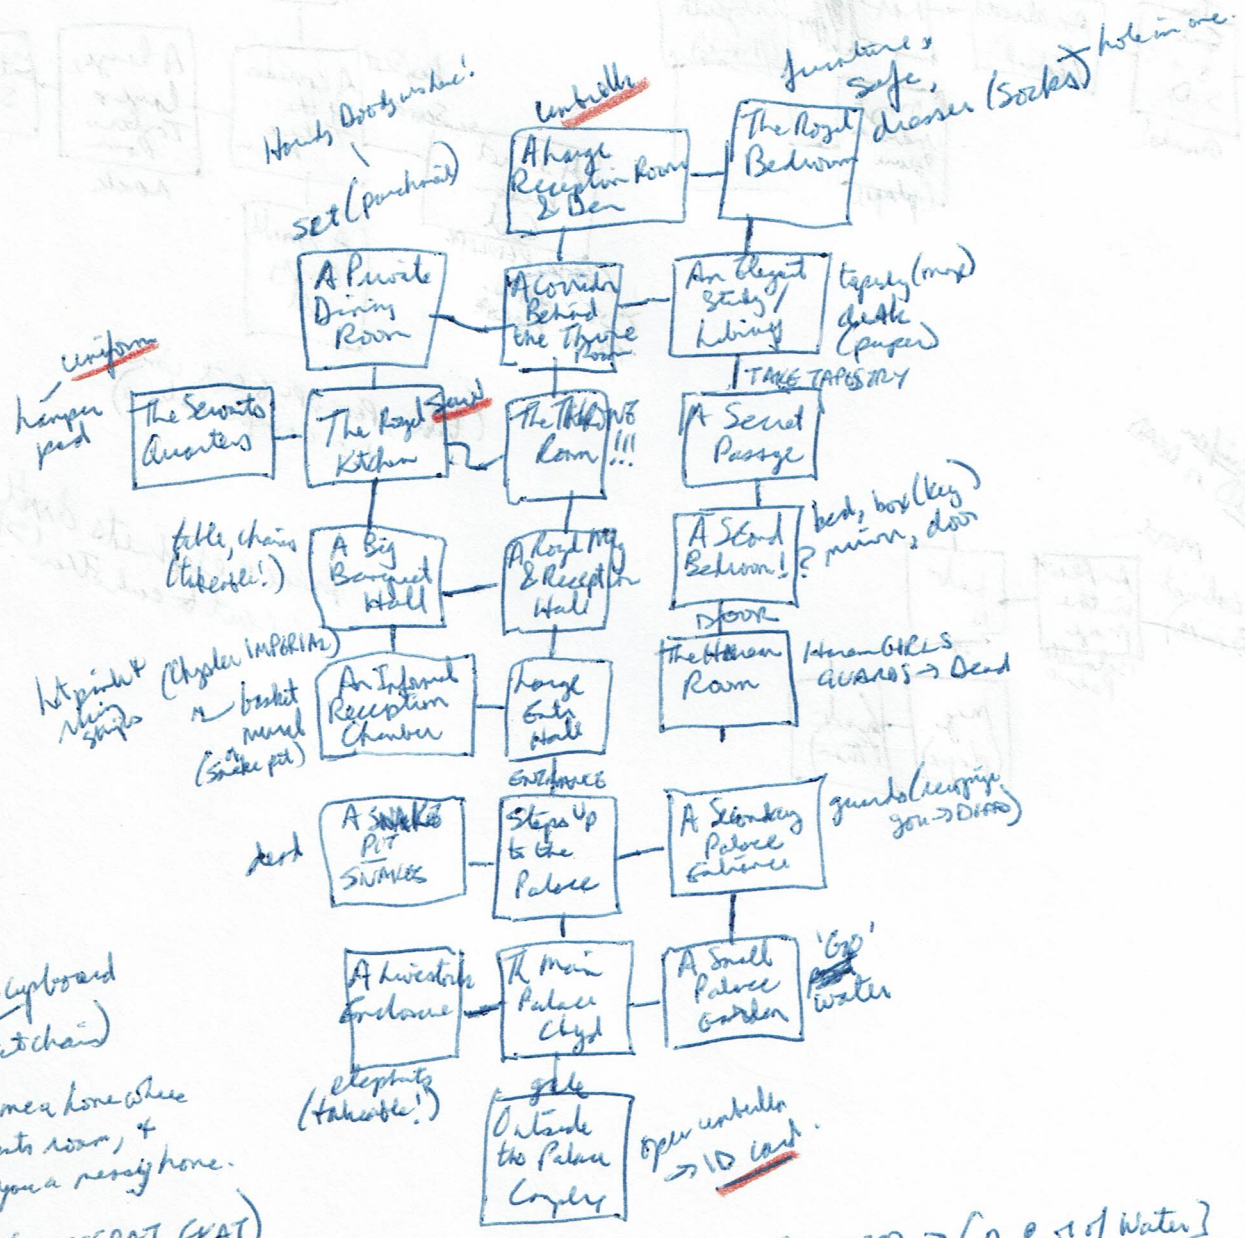 furniture,
safe,
dresser (socks)
hole in one.
umbrella
set (parchment)
A Large
Reception Room
& Den
The Royal
Bedroom
A Private
Dining
Room
A Corridor
Behind
the Throne
Room
An Elegant
Study/
Library
tapestry (max)
desk
(paper)
TAKE TAPESTRY
uniform
hamper
pad
The Servants
Quarters
The Royal
Kitchen
The THRONE
Room !!!
A Secret
Passage
table, chairs
(takeable!)
A Big
Banquet
Hall
A Royal Mtg
& Reception
Hall
A Second
Bedroom!
bed, box (key)
? mirror, door
DOOR
hot pink &
strips
(Chrysler IMPERIAL)
basket
mural
(snake pit)
An Informal
Reception
Chamber
Large
Entry
Hall
The Harem
Room
Harem GIRLS
GUARDS → Dead
ENTRANCE
dead
A SNAKE
PIT
SNAKES
Steps Up
to the
Palace
A Secondary
Palace
Entrance
guards (recognize
you →
A Livestock
Enclosure
Th Main
Palace
Ctyd
A Small
Palace
Garden
water
elephants
(takeable!)
gate
Outside
the Palace
Complex
open umbrella
→ ID card.
cupboard
me a home where
roam, &
you a messy home.
of Water]